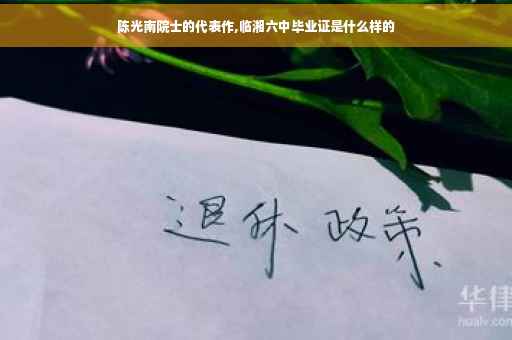 陈光南院士的代表作,临湘六中毕业证是什么样的
退休 政策
华律
hualv.com